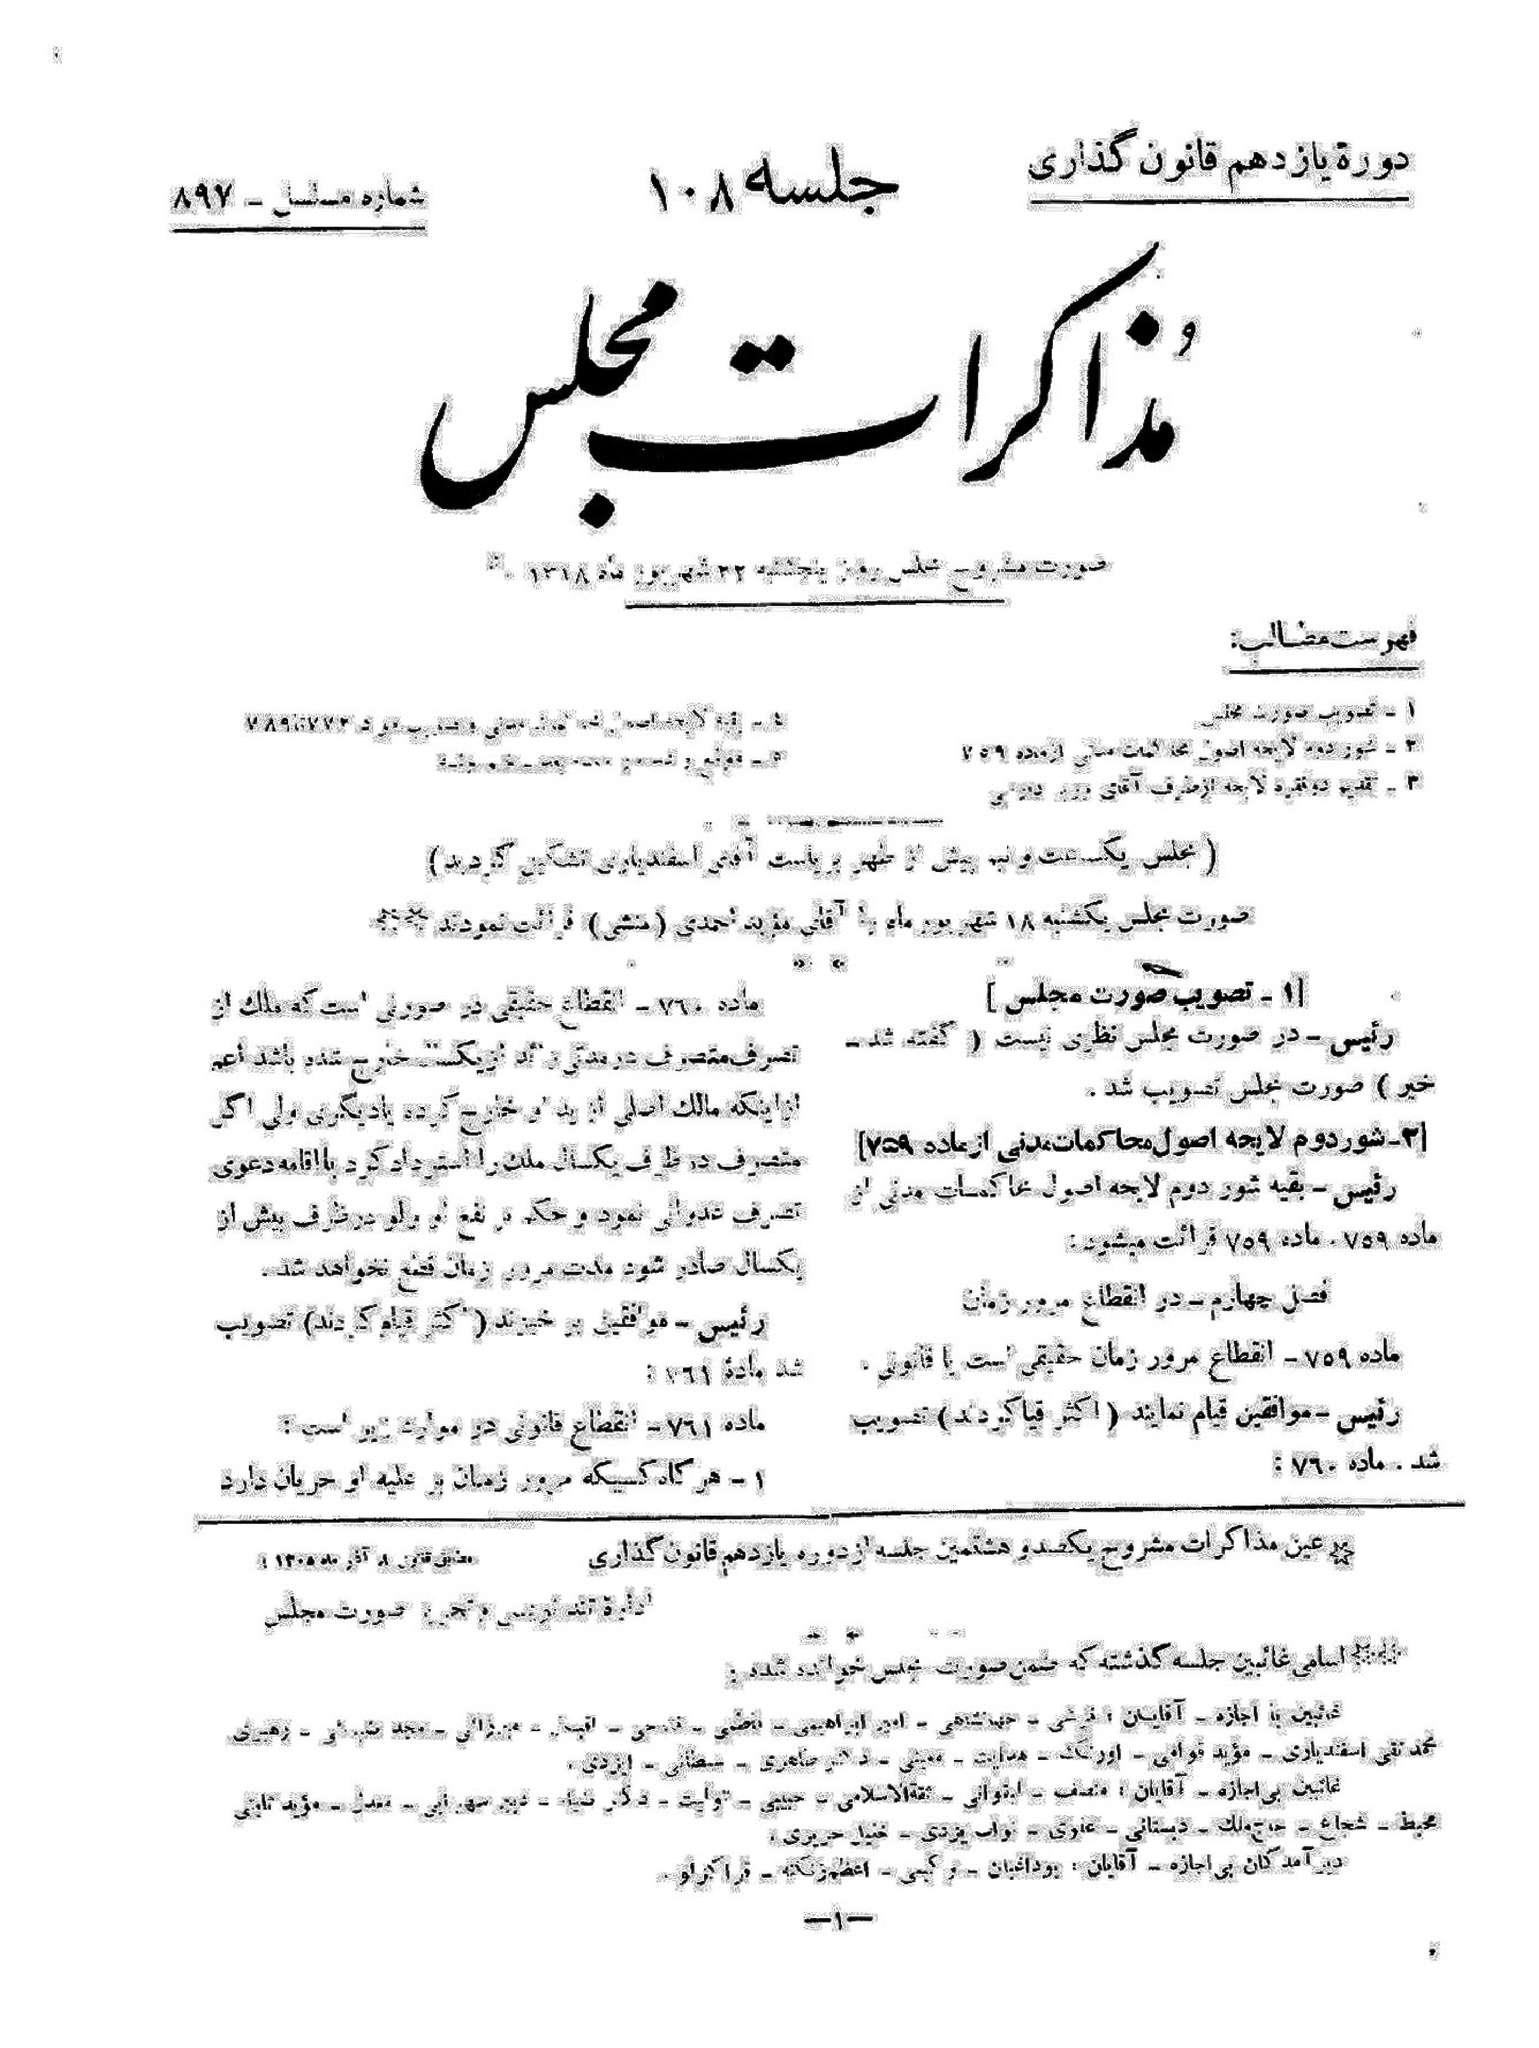 دورهٔ یازدهم قانون گذاری
جلسه ۱۰۸
شماره مسلسل ـ ۸۹۷
مذاکرات مجلس
صورت مشروح مجلس روز پنجشنبه ۲۲ شهریور ماه ۱۳۱۸
فهرست مطالب:
۱ ـ تصویب صورت مجلس
۲ ـ شور دوم لایحه اصول محاکمات مدنی از ماده ۷۵۹
۳ ـ تقدیم دو فقره لایحه از طرف آقای وزیر
۴ ـ بقیه لایحه اصول محاکمات مدنی و تصویب مواد
( مجلس یکساعت و نیم پیش از ظهر بریاست آقای اسفندیاری تشکیل گردید )
صورت مجلس یکشنبه ۱۸ شهریور ماه را آقای مؤید احمدی (منشی) قرائت نمودند
[ ۱ ـ تصویب صورت مجلس ]
رئیس ـ در صورت مجلس نظری نیست ( گفته شد ـ
خیر ) صورت مجلس تصویب شد .
[۲ـ شور دوم لایحه اصول محاکمات مدنی از ماده ۷۵۹]
رئیس ـ بقیه شور دوم لایحه اصول محاکمات مدنی از
ماده ۷۵۹ . ماده ۷۵۹ قرائت میشود :
فصل چهارم ـ در انقطاع مرور زمان
ماده ۷۵۹ ـ انقطاع مرور زمان حقیقی است یا قانونی .
رئیس ـ موافقین قیام نمایند ( اکثر قیام کردند ) تصویب
شد . ماده ۷۶۰ :
ماده ۷۶۰ ـ انقطاع حقیقی در صورتی است که ملك از
تصرف متصرف در مدتی زائد از یکسال خارج شده باشد اعم
از اینکه مالك اصلی از ید او خارج کرده یا دیگری ولی اگر
متصرف در ظرف یکسال ملك را استرداد کرد یا اقامه دعوی
تصرف عدوانی نمود و حکم بر نفع او ولو در ظرف بیش از
یکسال صادر شود مدت مرور زمان قطع نخواهد شد .
رئیس ـ موافقین بر خیزند ( اکثر قیام کردند ) تصویب
شد ماده ۷۶۱ :
ماده ۷۶۱ ـ انقطاع قانونی در موارد زیر است :
۱ ـ هر گاه کسیکه مرور زمان بر علیه او جریان دارد
عین مذاکرات مشروح یکصد و هشتمین جلسه از دوره یازدهم قانون گذاری
مطابق قانون ۸ آذر ماه ۱۳۰۵ )
ادارهٔ تند نویسی و تحریر صورت مجلس
اسامی غائبین جلسه گذشته که ضمن صورت مجلس خوانده شده :
غائبین با اجازه ـ آقایان : جهانشاهی ـ امیر ابراهیمی ـ فاطمی ـ فتوحی ـ اقبال ـ میرزائی ـ مجد ضیائی ـ رهبری
محمد تقی اسفندیاری ـ مؤید قوامی ـ اورنگ ـ هدایت ـ معینی ـ دکتر طاهری ـ سلطانی ـ ایزدی .
غائبین بی اجازه ـ آقایان : منصف ـ لیقوانی ـ ثقةالاسلامی ـ حبیبی ـ دکتر ضیاء ـ دبیر سهرابی ـ معدل ـ مؤید ثابتی
محیط ـ شجاع ـ حاج ملك ـ دبستانی ـ غفاری ـ نواب یزدی ـ خلیل حریری .
دیر آمدگان بی اجازه ـ آقایان : بوداغیان ـ ورگیبی ـ اعظم زنگنه ـ قراگزلو .
—۱—